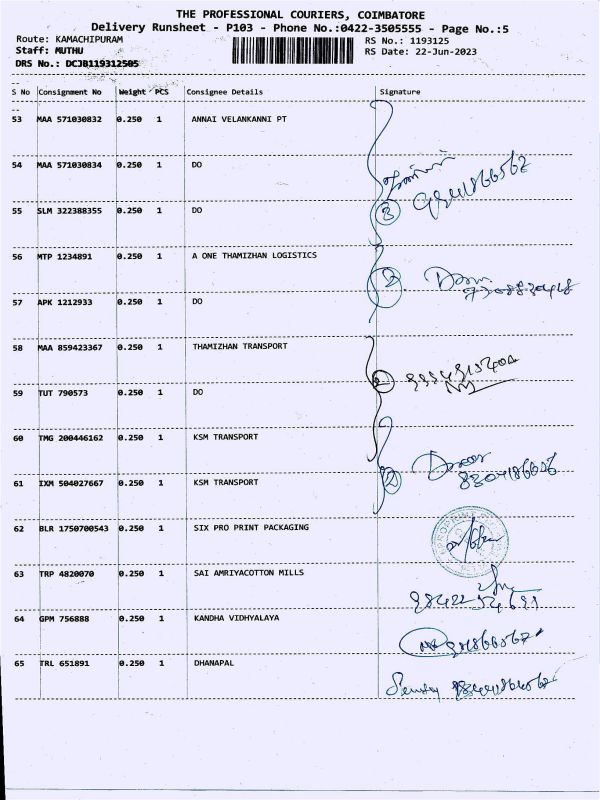 THE PROFESSIONAL COURIERS, COIMBATORE
Delivery Runsheet - P103 - Phone No.:0422-3505555 - Page No.:5
Route: KAMACHIPURAM RS No.: 1193125
Staff: MUTHU RS Date: 22-Jun-2023
DRS No.: DCJB119312505
S No Consignment No Weight PCS Consignee Details Signature
53 MAA 571030832 0.250 1 ANNAI VELANKANNI PT
54 MAA 571030834 0.250 1 DO
55 SLM 322388355 0.250 1 DO
3
56 MTP 1234891 0.250 1 A ONE THAMIZHAN LOGISTICS
2
57 APK 1212933 0.250 1 DO
58 MAA 859423367 0.250 1 THAMIZHAN TRANSPORT
2
59 TUT 790573 0.250 1 DO
60 TMG 200446162 0.250 1 KSM TRANSPORT
61 IXM 504027667 0.250 1 KSM TRANSPORT
2
62 BLR 1750700543 0.250 1 SIX PRO PRINT PACKAGING
63 TRP 4820070 0.250 1 SAI AMRIYACOTTON MILLS
64 GPM 756888 0.250 1 KANDHA VIDHYALAYA
65 TRL 651891 0.250 1 DHANAPAL